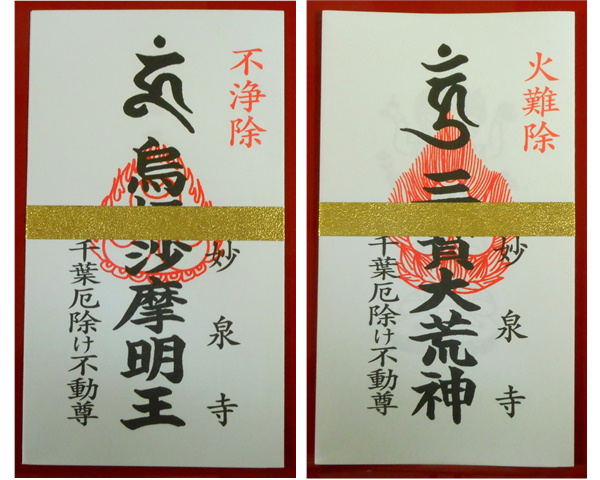 不浄除
妙泉寺
烏沙摩明王
千葉厄除け不動尊
火難除
妙泉寺
三大荒神
千葉厄除け不動尊